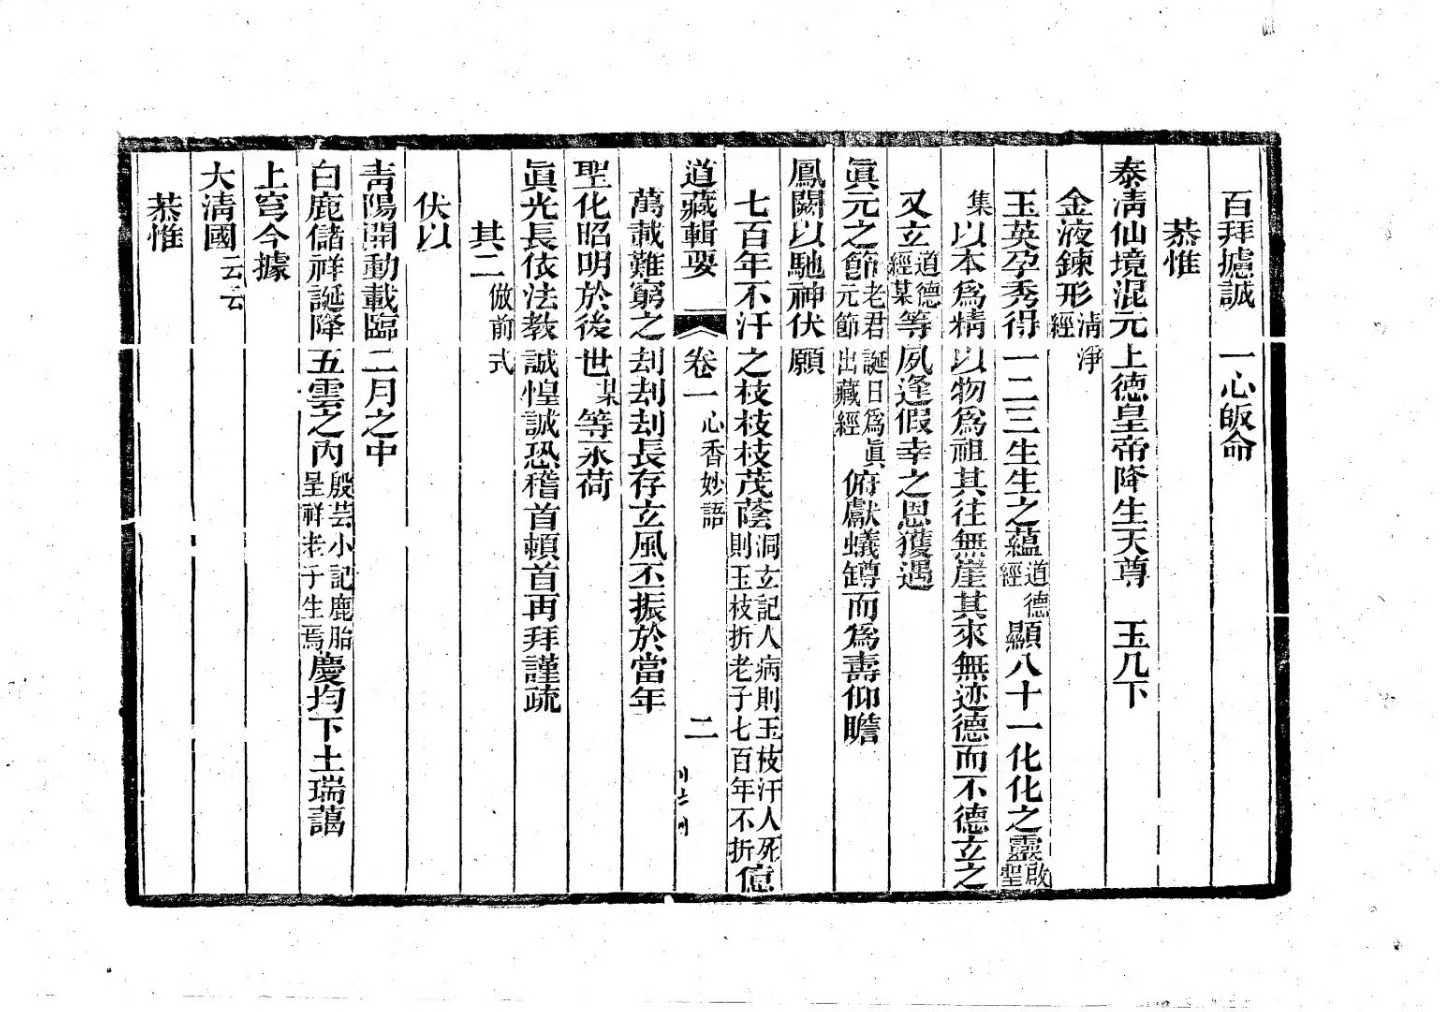 百拜攄誠　一心皈命
恭惟
泰淸仙境混元上德皇帝降生天尊　玉几下
金液鍊形淸淨經
玉英孕秀得一二三生生之蘊道德經顯八十一化化之靈啟聖
集以本爲精以物爲祖其往無崖其來無迹德而不德立之
又立道德經某等夙逢假幸之恩獲遇
眞元之節老君誕日爲眞元節出藏經俯獻蟻罇而爲壽仰瞻
鳳闕以馳神伏願
七百年不汗之枝枝枝茂蔭洞立記人病則玉枝汗人死則玉枝折老子七百年不折億
道藏輯要　卷一心香妙語　二
萬載難窮之刦刦刦長存立風丕振於當年
聖化昭明於後世某等永荷
眞光長依法教誠惶誠恐稽首頓首再拜謹疏
其二倣前式
伏以
靑陽開動載臨二月之中
白鹿儲祥誕降五雲之內殷芸小記鹿胎呈祥老子生焉慶均下土瑞藹
上穹今據
大淸國云云
恭惟